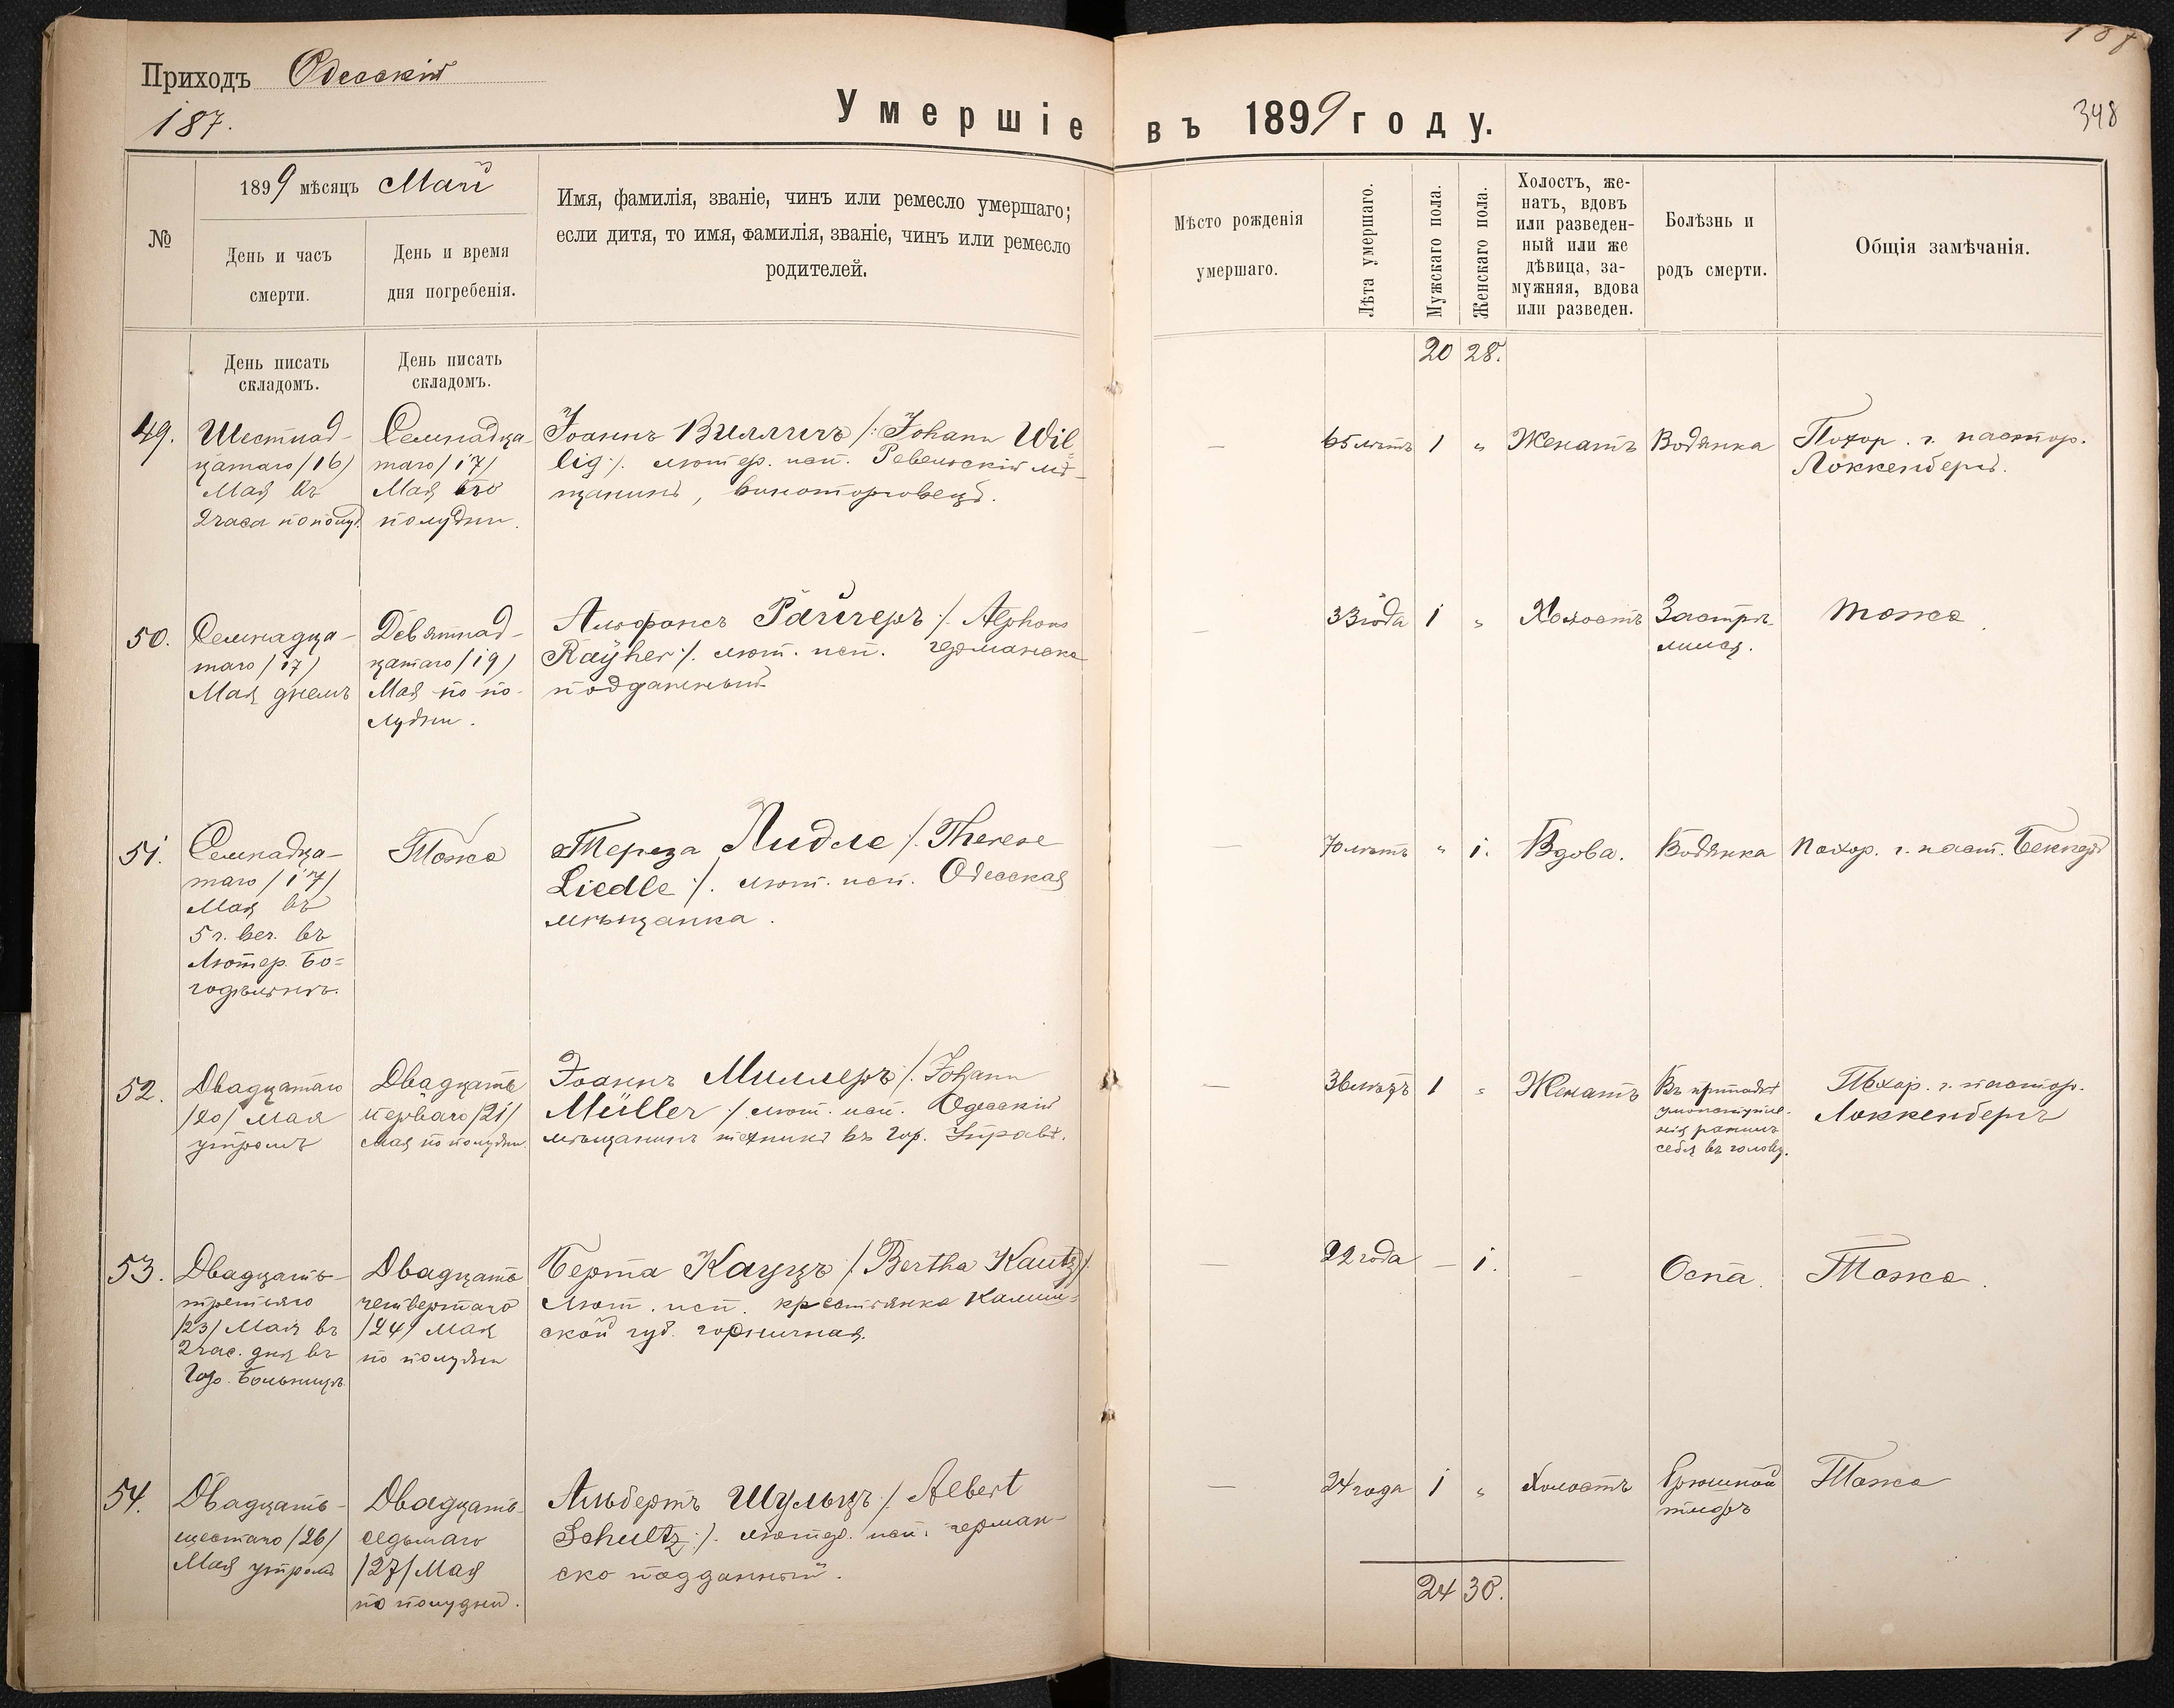 Приходъ Одесскій
187.
Умершіе въ 1899 году.
348
№
1899 мѣсяцъ Май
День и часъ
смерти.
День и время
дня погребенія.
Имя, фамилія, званіе, чинъ или ремесло умершаго;
если дитя, то имя, фамилія, званіе, чинъ или ремесло
родителей.
Мѣсто рожденія
умершаго.
Лѣта умершаго.
Мужскаго пола.
Женскаго пола.
Холостъ, же-
натъ, вдовъ
или разведен-
ный или же
дѣвица, за-
мужняя, вдова
или разведен.
Болѣзнь и
родъ смерти.
Общія замѣчанія.
День писать
складомъ.
День писать
складомъ.
20 28.
49.
Шестнад-
цатаго /16/
Мая въ
2 часа по полуд.
Семнадца-
таго /17/
Мая по
полудни.
Іоаннъ Виллигъ /: Johann Wil=
lig :/. лютер. исп. Ревельскій мѣ-
щанинъ, виноторговецъ.
—
65 лѣтъ
1
"
Женатъ
Водянка
Похор. г. пастор.
Локкенбергъ.
50.
Семнадца-
таго /17/
Мая днемъ
Девятнад-
цатаго /19/
Мая по по-
лудни.
Альфонсъ Райгеръ /. Alphons
Raÿher /. лют. исп. германско
подданный
—
33 года
1
"
Холостъ
Застрѣ-
лился.
Тоже.
51.
Семнадца-
таго /17/
Мая въ
5 ч. веч. въ
Лютер. Бо=
годѣльнѣ.
Тоже
Тереза Лидле /. Therese
Liedle /. лют. исп. Одесская
мѣщанка.
—
70 лѣтъ
"
1.
Вдова.
Водянка
Похор. г. паст. Беккеръ
52.
Двадцатаго
/20/ Мая
утромъ
Двадцать
перваго /21/
Мая по полудни.
Іоаннъ Миллеръ /. Johann
Müller /. лют. исп. Одесскій
мѣщанинъ техникъ въ Гор. Управѣ.
—
лѣтъ
1
"
Женатъ
Въ припадкѣ
умопомѣшат.
ранилъ
себя въ голову.
Похор. г. пастор.
Локкенбергъ
53.
Двадцать-
третьяго
/23/ Мая въ
2 час. дня въ
Гор. Больницѣ
Двадцать
четвертаго
/24/ Мая
по полудни
Берта Кауцъ /. Bertha Kautz /.
Лют. исп. крестьянка Калиш=
ской губ. горничная.
—
22 года
—
1.
—
Оспа.
Тоже.
54.
Двадцать-
шестаго /26/
Мая утромъ
Двадцать-
седьмаго
/27/ Мая
по полудни.
Альбертъ Шульцъ /. Albert
Schultz :/. лютер. исп. герман-
ско подданный.
—
24 года
1
"
Холостъ
Брюшной
тифъ
Тоже
24 30.